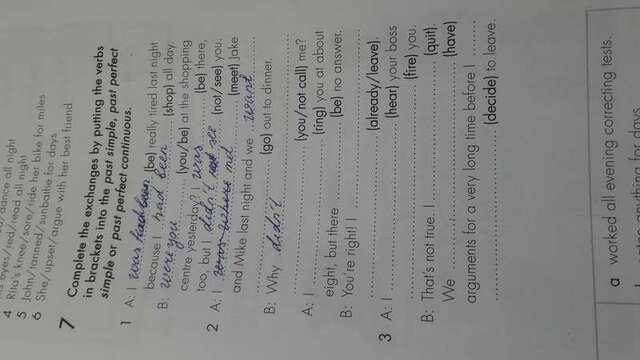 eyes/red/read all night
4 Rita's knee/sore/ride her bike for miles
5 John/tanned/sunbathe for days
6 She/upset/argue with her best friend
7 Complete the exchanges by putting the verbs
in brackets into the past simple, past perfect
simple or past perfect continuous.
1 A: I was had been (be) really tired last night
because I had been (shop) all day.
B: were you (you/be) at the shopping
centre yesterday? I was (be) there,
too, but I didn't see (not/see) you.
2 A: I was where met (meet) Jake
and Mike last night and we want
(go) out to dinner.
B: Why didn't
(you/not call) me?
A: I (ring) you at about
eight, but there (be) no answer.
B: You're right! I
(already/leave).
3 A: I (hear) your boss
(fire) you.
B: That's not true. I (quit).
We (have)
arguments for a very long time before I
(decide) to leave.
a worked all evening correcting tests.
anything for days